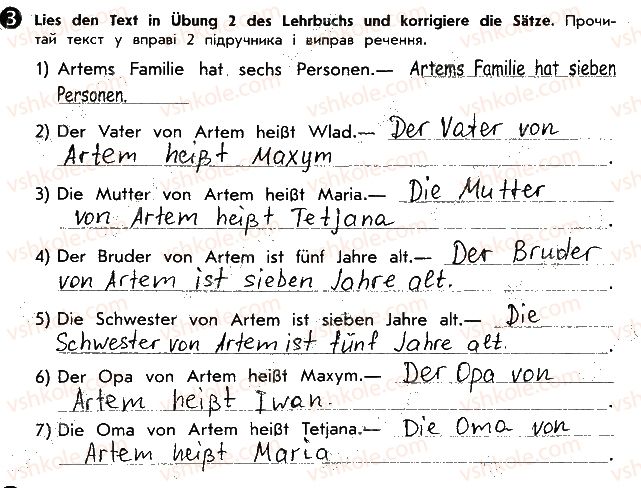 3 Lies den Text in Übung 2 des Lehrbuchs und korrigiere die Sätze. Прочи-
тай текст у вправі 2 підручника і виправ речення.
1) Artems Familie hat sechs Personen.— Artems Familie hat sieben
Personen.
2) Der Vater von Artem heißt Wlad.— Der Vater von
Artem heißt Maxym
3) Die Mutter von Artem heißt Maria.— Die Mutter
von Artem heißt Tetjana.
4) Der Bruder von Artem ist fünf Jahre alt.— Der Bruder
von Artem ist sieben Jahre alt.
5) Die Schwester von Artem ist sieben Jahre alt.— Die
Schwester von Artem ist fünf Jahre alt.
6) Der Opa von Artem heißt Maxym.— Der Opa von
Artem heißt Iwan.
7) Die Oma von Artem heißt Tetjana.— Die Oma von
Artem heißt Maria.